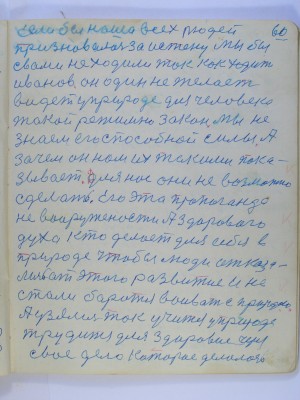 если бы наша всех людей
признавалась за истену мы бы
сами не ходили так как ходит
иванов. он один не желает
видеть у природе для человека
такой режим закон. мы не
знаем его способной силы. А
зачем он нам их такими пока-
зывает. для нас они не возможно
сделать. Его эта пропоганда
не вооружености А здороваго
духа кто делает для себя в
природе чтобы люди отказа-
лись от этого развитие и не
стали боротся воевать с природой
А узялися так учится у природе
трудится для здоровие
свое дело которое делалось